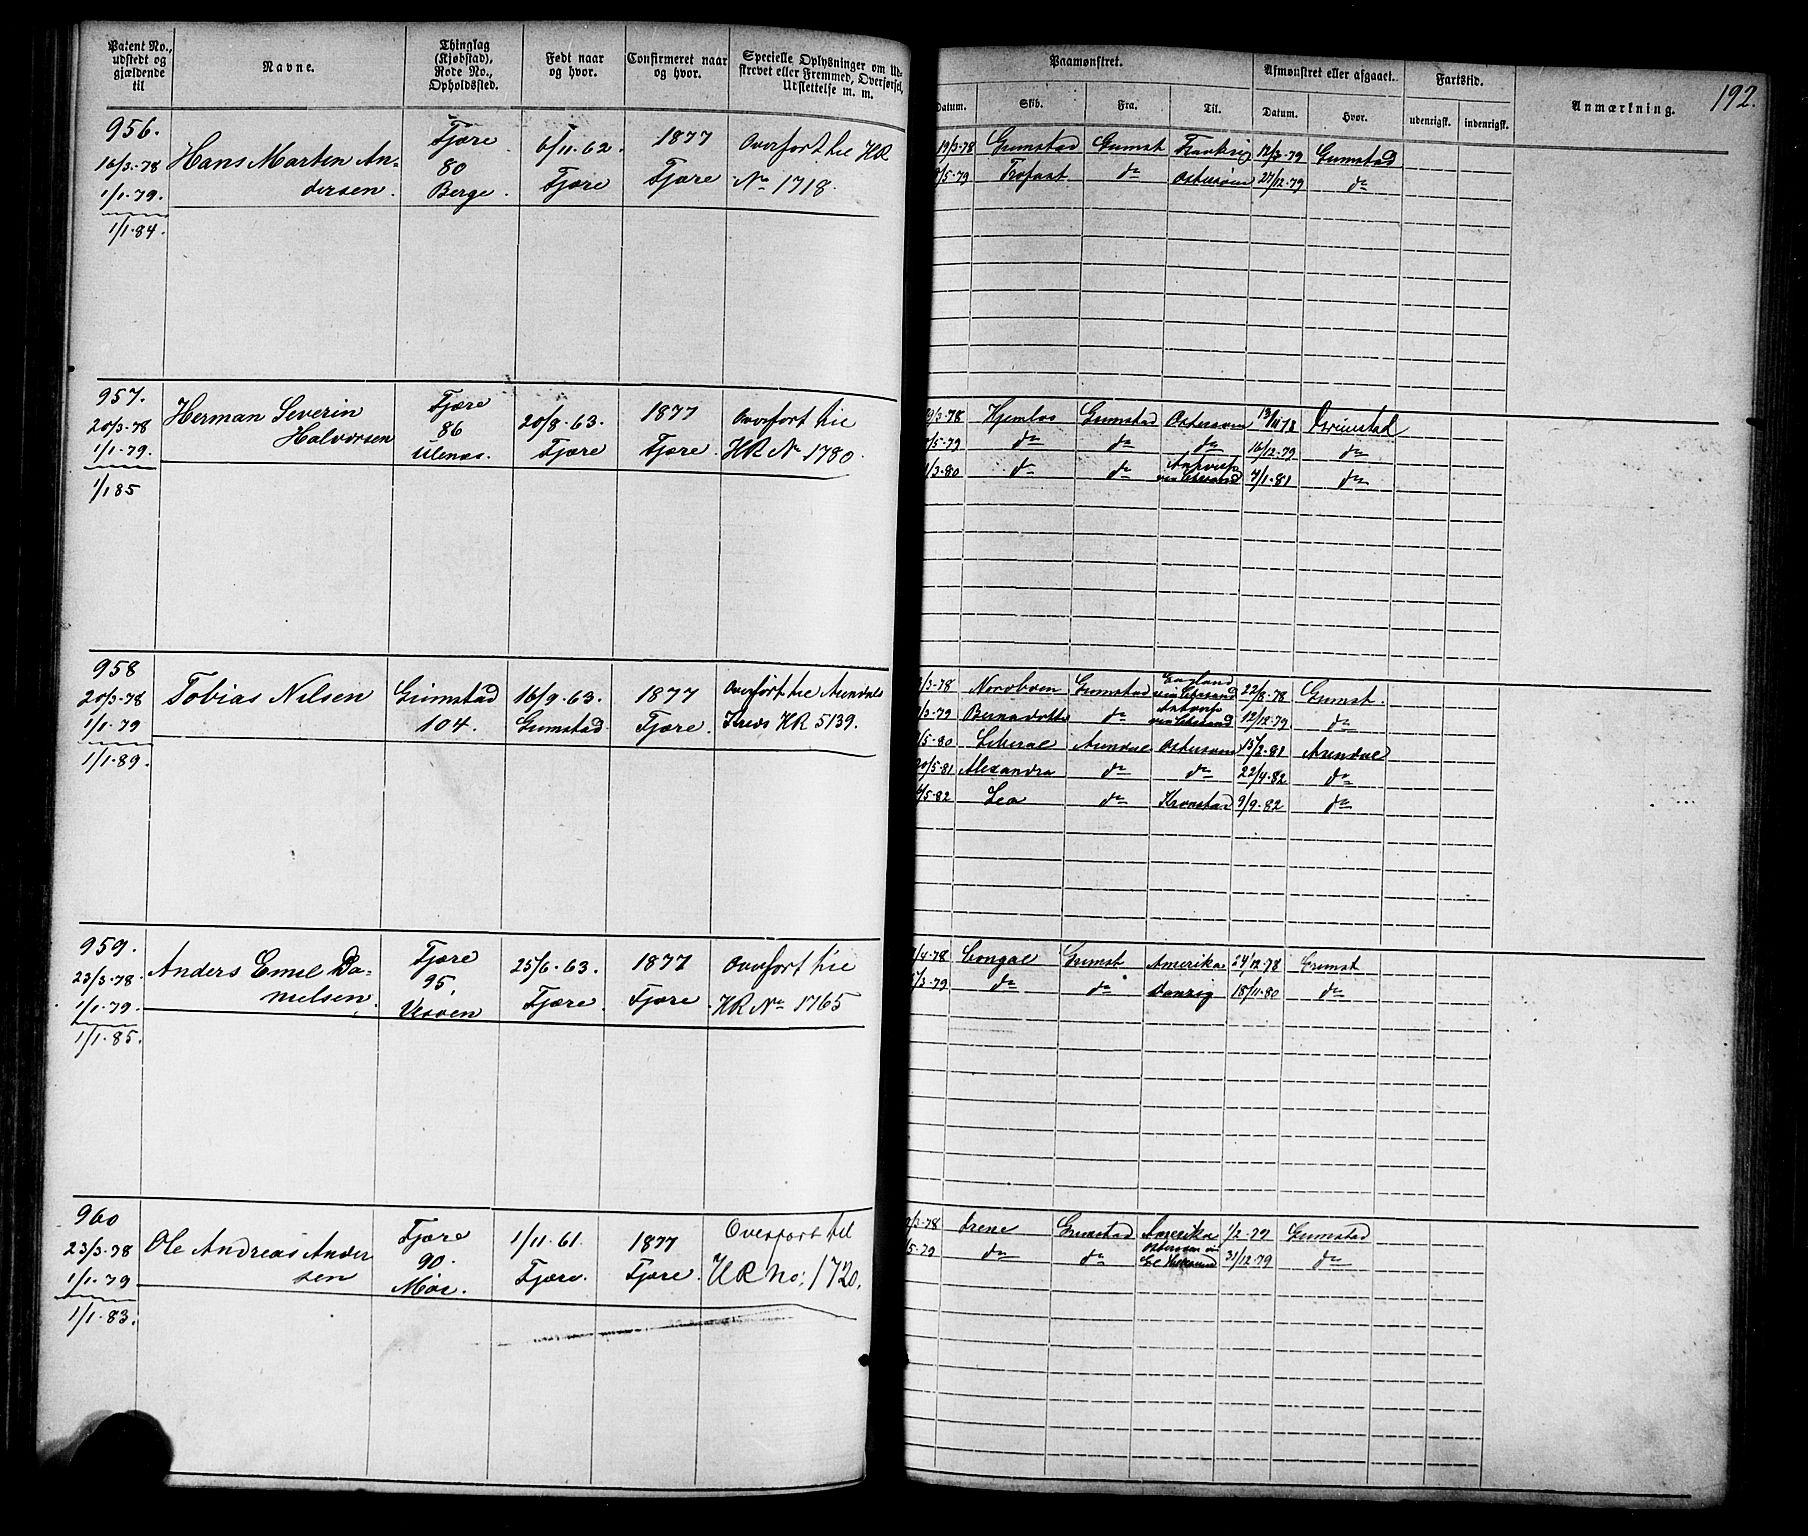 Patent No., udstedt og gjældende til
Navne.
Thinglag (Kjøbstad), Rode No., Opholdssted.
Født naar og hvor.
Confirmeret naar og hvor.
Specielle Oplysninger om Udskrevet eller Fremmed, Overførsel, Udslettelse m. m.
Paamønstret.
Afmønstret eller afgaaet.
Fartstid.
Anmærkning.
192.
Datum.
Skib.
Fra.
Til.
Datum.
Hvor.
udenrigsk.
indenrigsk.
956.
16/3-78
1/1-79.
1/1-84.
Hans Marten Andersen.
Fjære
80
Berge.
6/11-62.
Fjære
1877
Fjære
Overført til HR
No 1718.
19/3-78 Grimstad Grimst 79 Grimstad
/5-79 Trofast do Østersøen 27/12-79 do
957.
20/3-78
1/1-79.
1/1 85
Herman Severin
Halvorsen
Fjære
86
Ulenæs.
20/8-63.
Fjære
1877
Fjære.
Overført til
HR No 1780.
19/3-78 Hjemlos Grimstad Østersøen 13/11 78 Grimstad
/5-79 do do do 16/12-79 do
/3-80 do do 4/1-81 do
958
20/3-78
1/1-79
1/1-89.
Tobias Nilsen
Grimstad
104.
16/9-63.
Grimstad
1877
Fjære.
Overført til Arendals
Kreds HR 5139.
/3-78 Nordboen Grimstad England 22/8-78 Grimst.
/3-79 Bernadotte do Antverp 12/12-79 do
/5-80 Liberal Arendal Østersøen 15/2-81 Arendal
20/5-81 Alexandra do do 22/4-82 do
/5-82 Leo do Kronstad 9/9-82 do
959.
23/3-78
1/1-79.
1/1-85.
Anders Emil Danielsen.
Fjære
95.
Vessøen
25/6-63.
Fjære.
1877
Fjære
Overført til
HR No 1765
/4-78 Congal Grimst Amerika 24/12-78 Grimst
/3-79 do do Danzig 18/11-80 do
960
23/3-78
1/1-79
1/1-83.
Ole Andreas Andersen
Fjære
90.
Moe.
1/11-61.
Fjære.
1877
Fjære.
Overført til
HR No: 1720.
/3-78 Irene Grimstad Amerika 1/2-79 Grimstad
/5-79 do do Østersøen 31/12-79 do